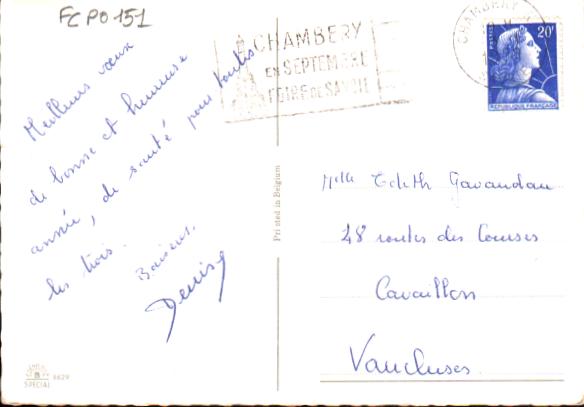 FCPO151
CHAMBERY
EN SEPTEMBRE
FOIRE DE SAVOIE
CHAMBERY
POSTES
20F
REPUBLIQUE FRANÇAISE
Meilleurs vœux
de bonne et heureuse
année, de santé pour toutes
les trois.
Baisers.
Denise
Printed in Belgium
Melle Edith Gavaudan
28 routes des Courses
Cavaillon
Vaucluses.
SPECIAL 6629